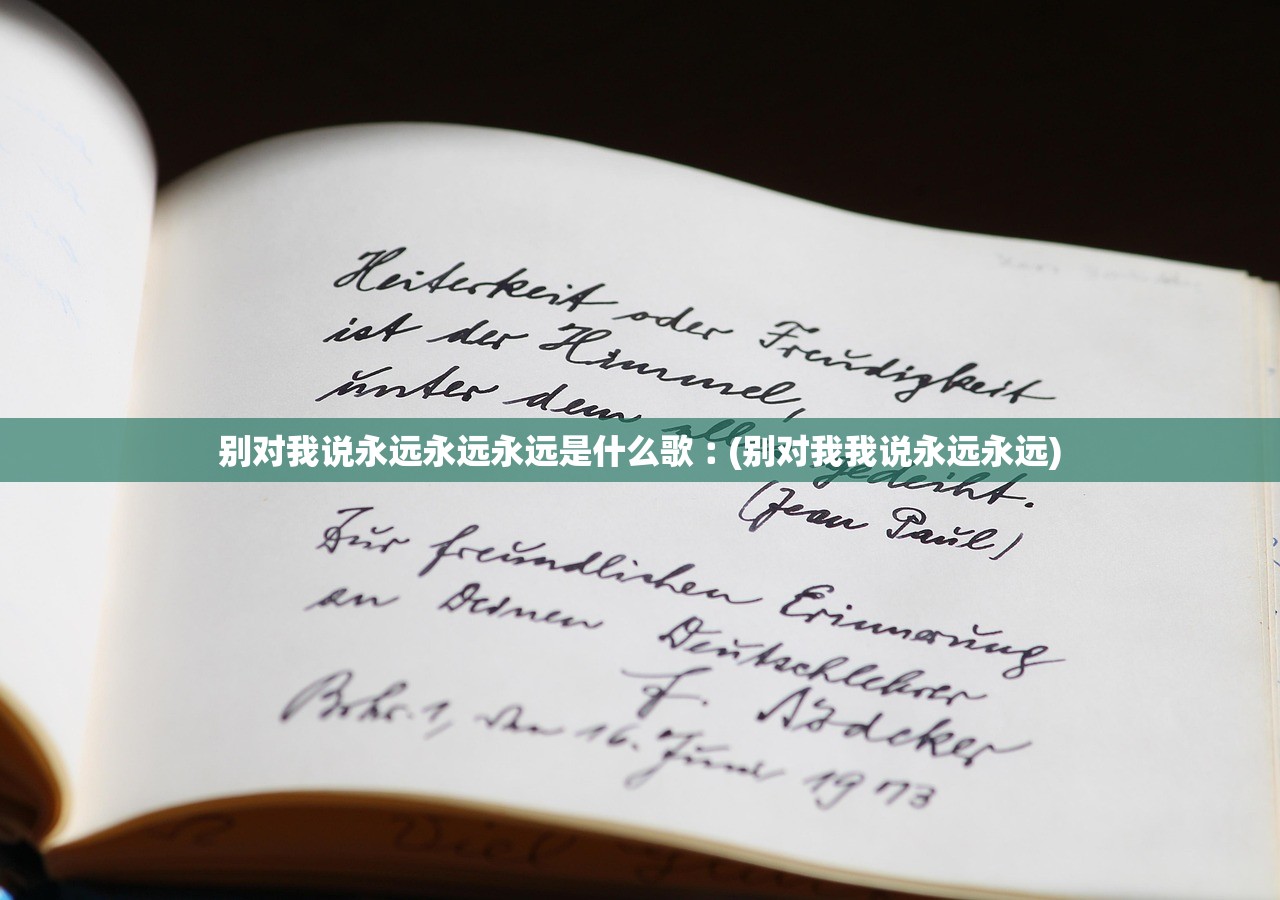 Heiterkeit oder Freudigkeit
ist der Himmel,
unter dem alles gedeiht.
别对我说永远永远永远是什么歌：(别对我我说永远永远)
(Jean Paul)
Zur freundlichen Erinnerung
an Deinen Deutschlehrer
F.
den 16. Juni 1973
Viel